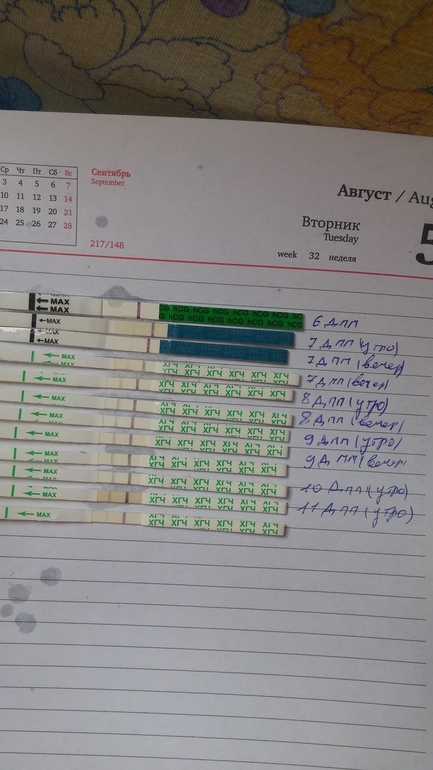 Ср Чт Пт Сб Вс
3 4 5 6 7
10 11 12 13 14
17 18 19 20 21
24 25 26 27 28
Сентябрь
September
217/148
Август / Aug
Вторник
Tuesday
5
week 32 неделя
MAX hCG hCG hCG hCG hCG hCG hC
MAX hCG hCG hCG hCG hCG hCG hCG
6 ДПП
MAX
7 ДПП (утро)
MAX
7 ДПП (вечер)
MAX ХГЧ ХГЧ ХГЧ ХГЧ ХГЧ ХГЧ
7 ДПП (вечер)
MAX ХГЧ ХГЧ ХГЧ ХГЧ ХГЧ ХГЧ
8 ДПП (утро)
MAX ХГЧ ХГЧ ХГЧ ХГЧ ХГЧ ХГЧ
8 ДПП (вечер)
MAX ХГЧ ХГЧ ХГЧ ХГЧ ХГЧ ХГЧ
9 ДПП (утро)
MAX ХГЧ ХГЧ ХГЧ ХГЧ ХГЧ
9 ДПП (вечер)
MAX ХГЧ ХГЧ ХГЧ ХГЧ ХГЧ
10 ДПП (утро)
MAX ХГЧ ХГЧ ХГЧ ХГЧ ХГЧ
11 ДПП (утро)
MAX ХГЧ ХГЧ ХГЧ ХГЧ ХГЧ